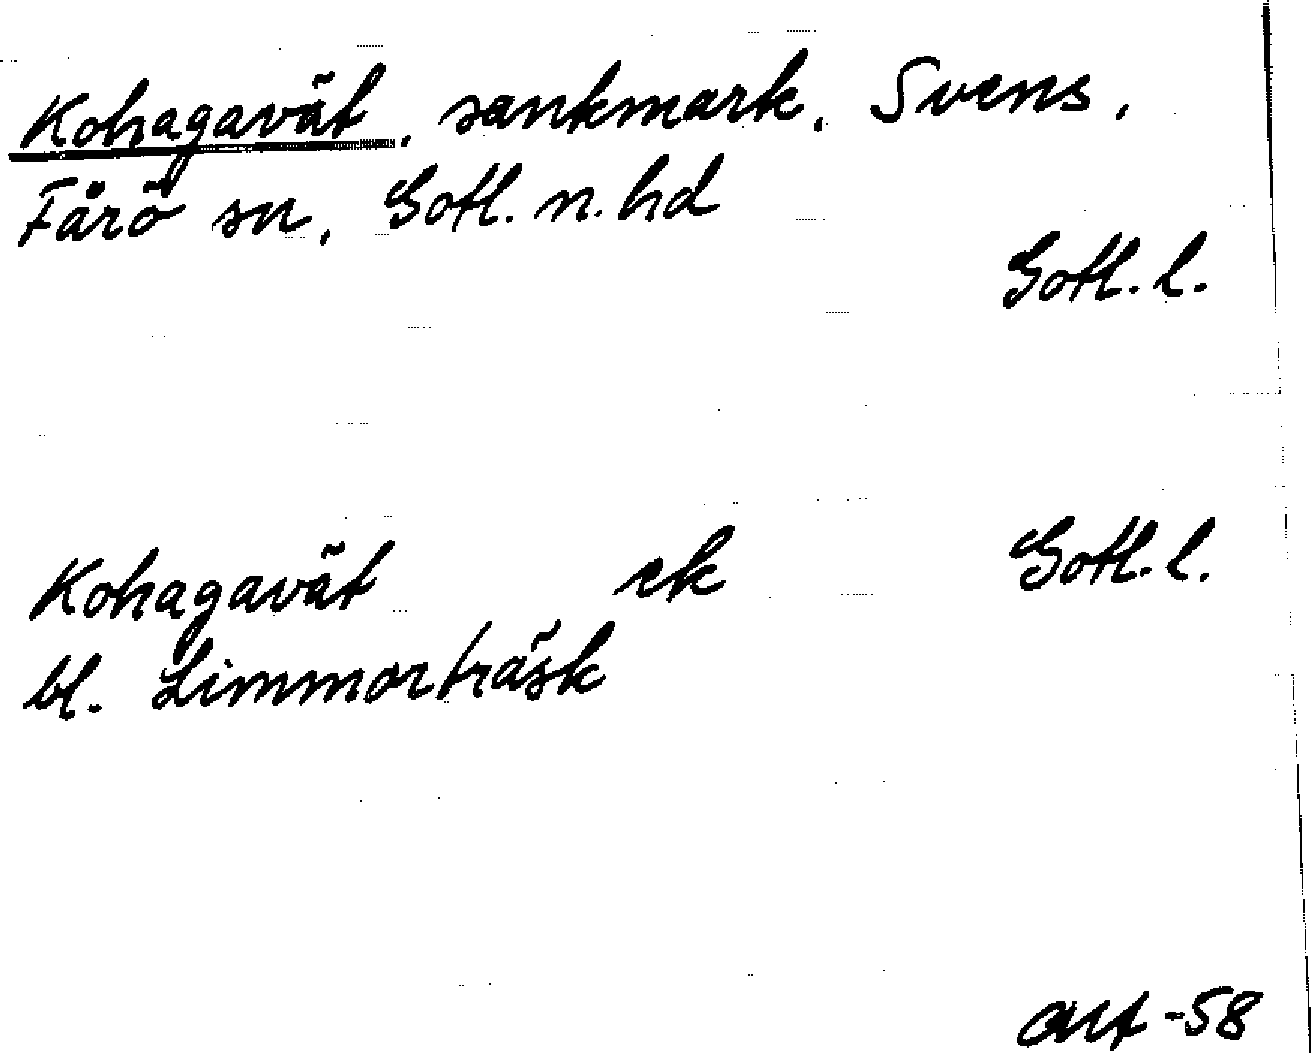 Kohagavät, sankmark, Svens,
Fårö sn, Gotl. n. hd
Gotl. l.
Kohagavät ek Gotl. l.
bl. Limmorträsk
-58